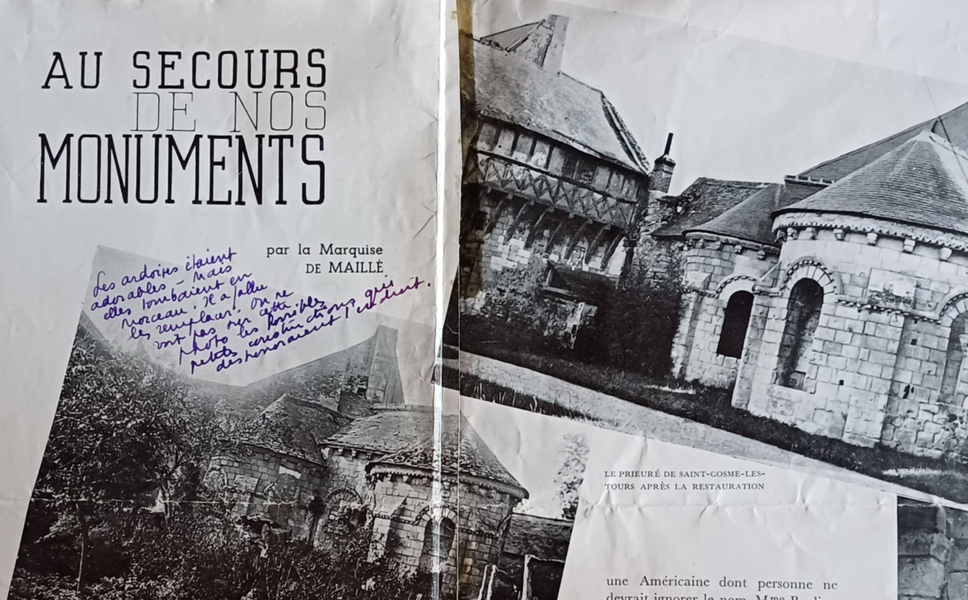 AU SECOURS
DE NOS
MONUMENTS
par la Marquise
DE MAILLÉ
Les ardoises étaient
adorables - Mais
elles tombaient en
morceau. Il a fallu
les remplacer. On ne
voit pas sur cette
photo les horribles
petites constructions qui
déshonoraient l'endroit.
LE PRIEURÉ DE SAINT-COSME-LES-
TOURS APRÈS LA RESTAURATION
une Américaine dont personne ne
devrait ignorer le nom Mme